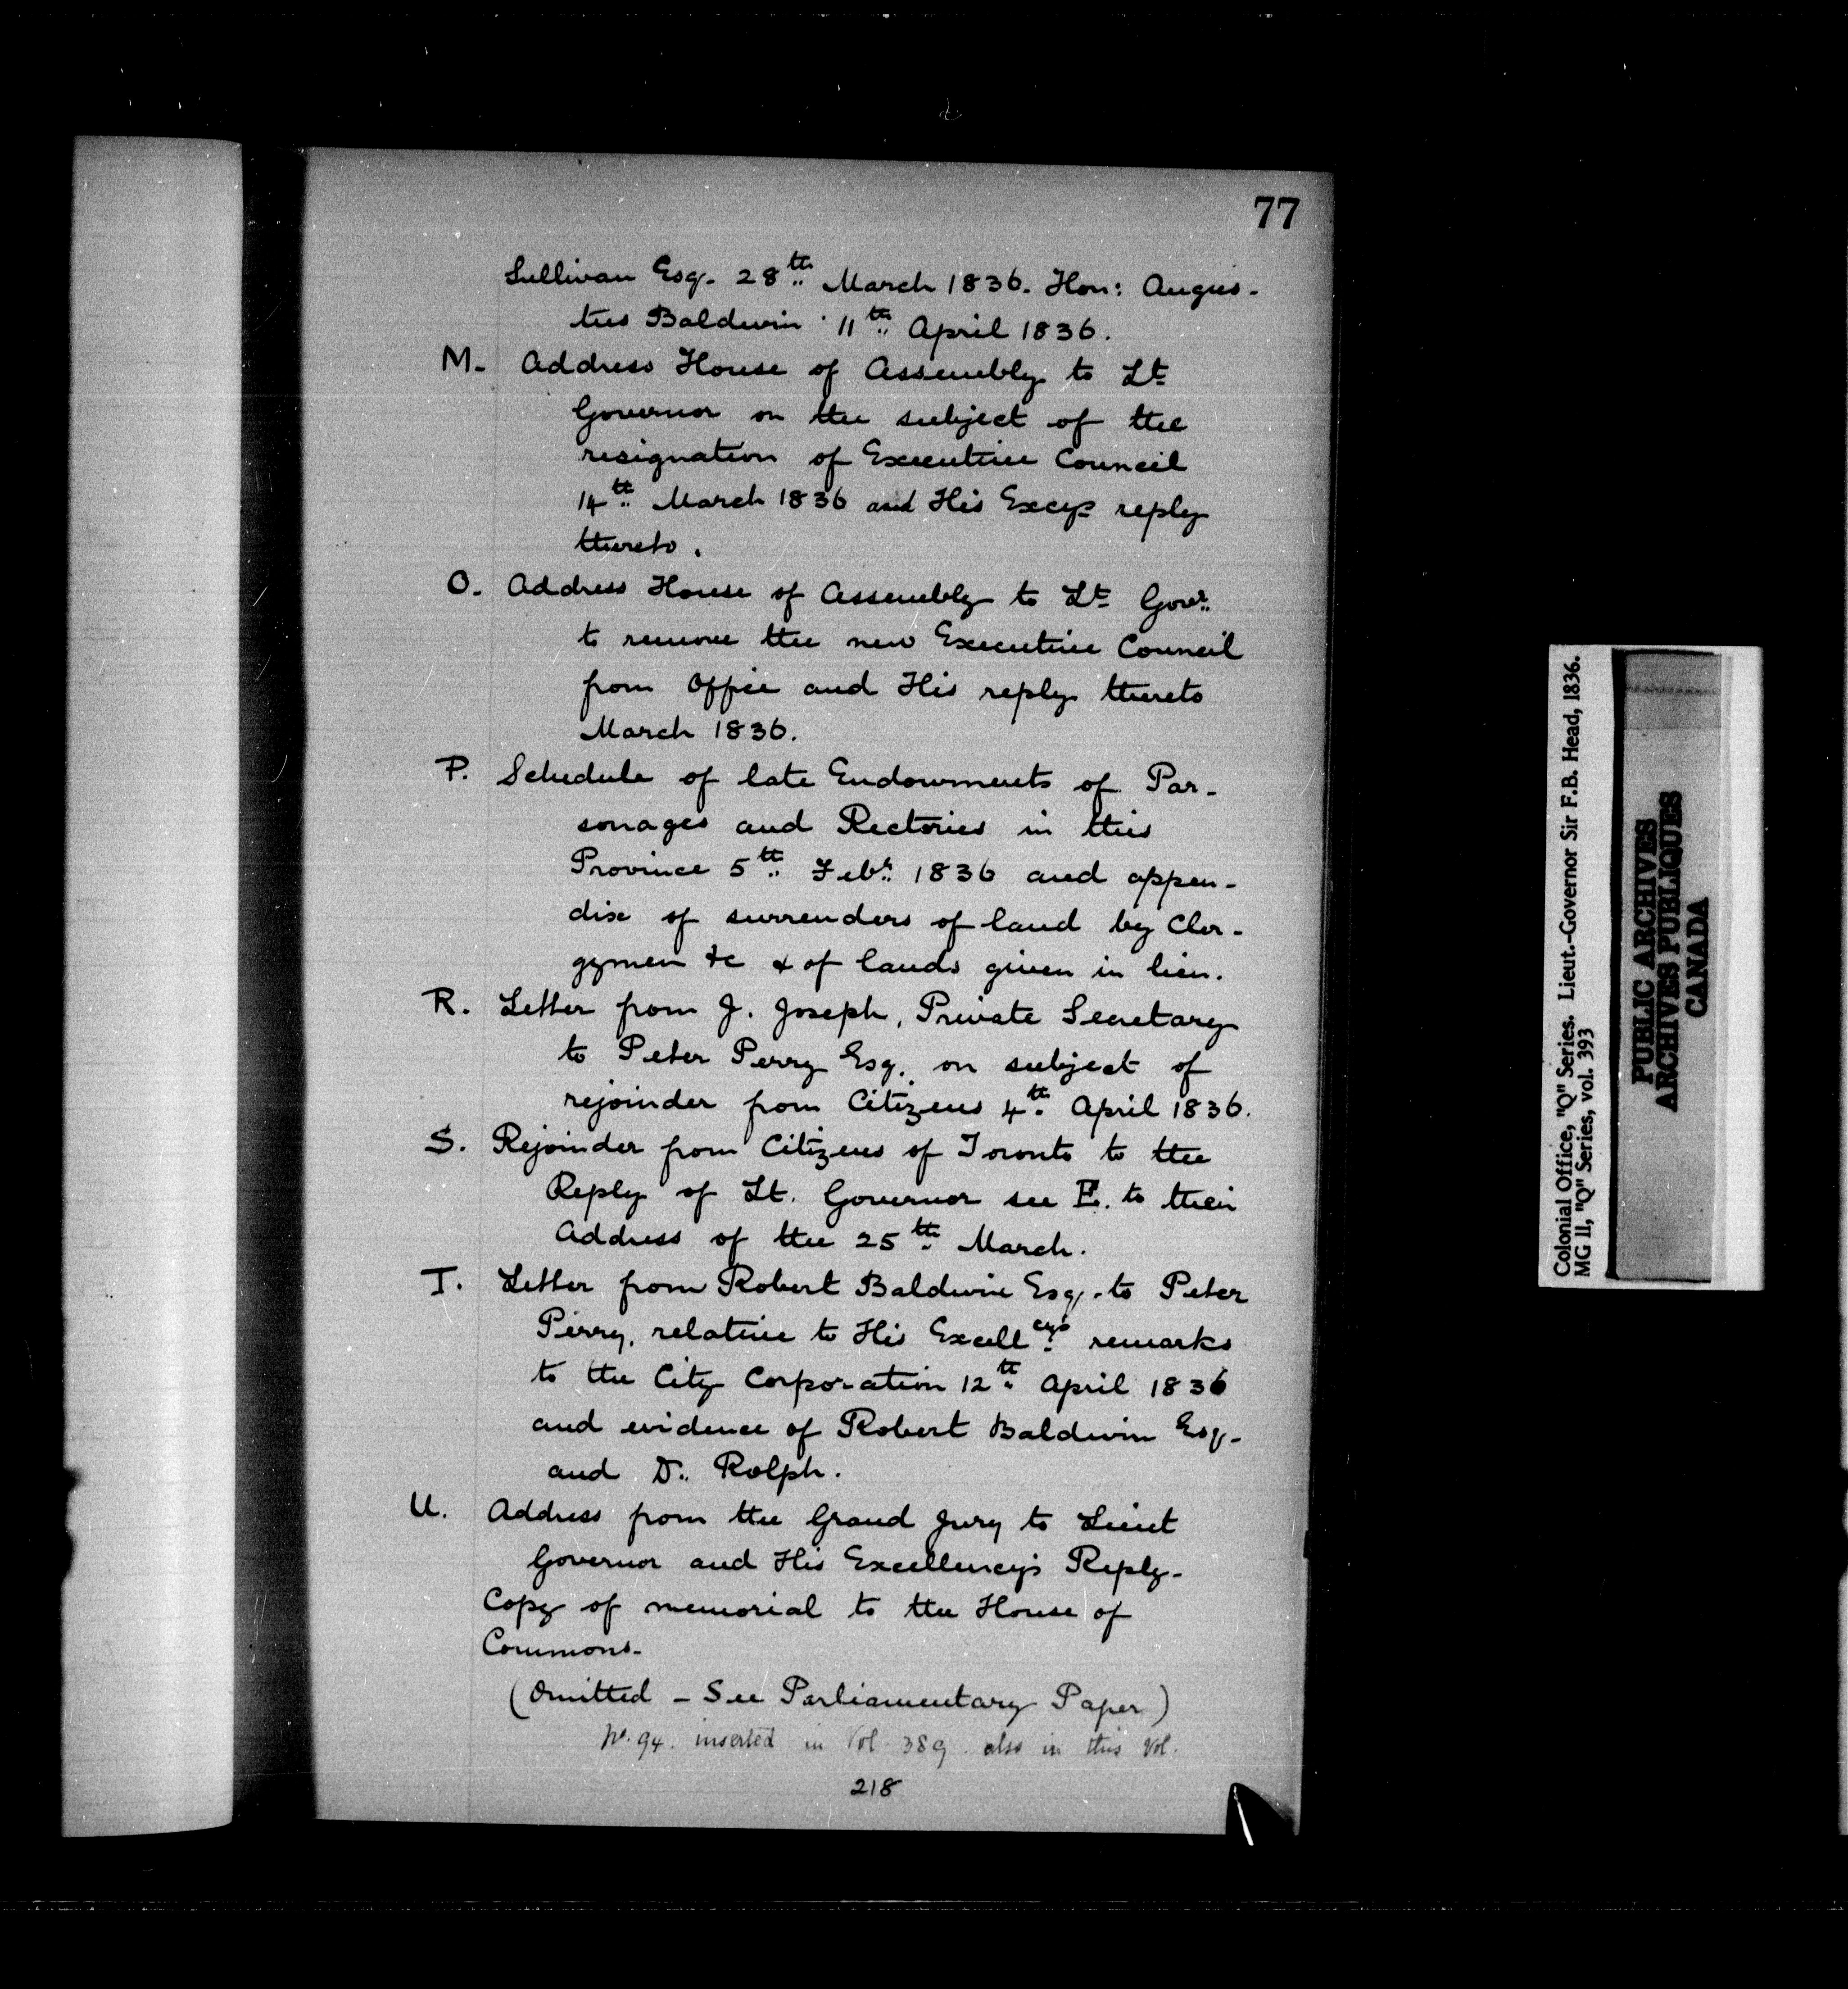 77
Sullivan Esq. 28th March 1836. Hon: Augus-
tus Baldwin 11th April 1836.
M. Address House of Assembly to Lt
Governor on the subject of the
resignation of Executive Council
14th March 1836 and His Excys reply
thereto.
O. Address House of Assembly to Lt Govr
to remove the new Executive Council
from Office and His reply thereto
March 1836.
P. Schedule of late Endowments of Par-
sonages and Rectories in this
Province 5th Feby 1836 and appen-
dix of surrenders of land by Cler-
gymen &c & of lands given in lieu.
R. Letter from J. Joseph, Private Secretary
to Peter Perry Esq. on subject of
rejoinder from Citizens 4th April 1836.
S. Rejoinder from Citizens of Toronto to the
Reply of Lt. Governor see E. to their
Address of the 25th March.
T. Letter from Robert Baldwin Esq. to Peter
Perry, relative to His Excellcys remarks
to the City Corporation 12th April 1836
and evidence of Robert Baldwin Esq-
and Dr. Rolph.
U. Address from the Grand Jury to Lieut
Governor and His Excellency's Reply-
Copy of memorial to the House of
Commons-
(Omitted - See Parliamentary Paper)
No. 94. inserted in Vol 389. also in this Vol.
218
Colonial Office, "Q" Series. Lieut.-Governor Sir F.B. Head, 1836.
MG 11, "Q" Series, vol. 393
PUBLIC ARCHIVES
ARCHIVES PUBLIQUES
CANADA